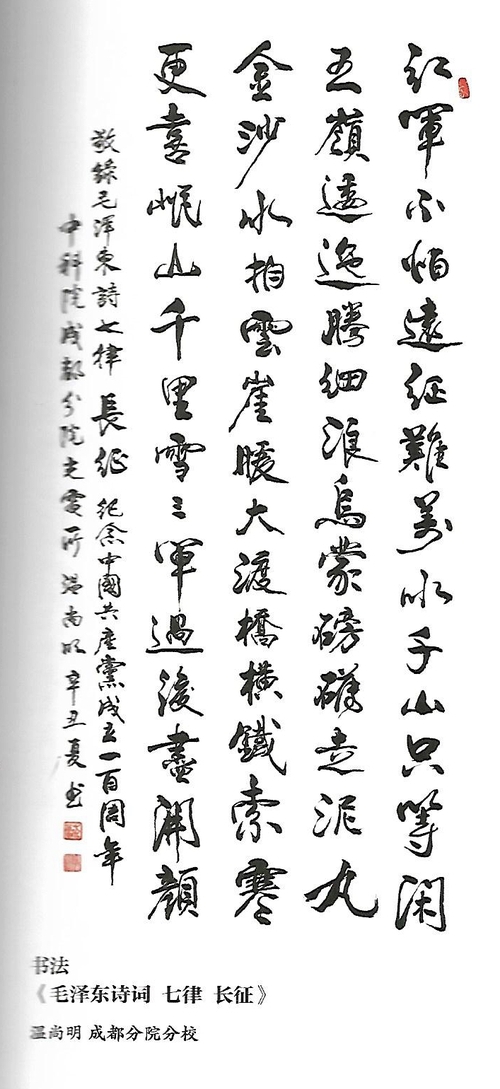 红軍不怕遠征難萬水千山只等闲
五嶺逶迤騰细浪烏蒙磅礴走泥丸
金沙水拍雲崖暖大渡橋横鐵索寒
更喜岷山千里雪三軍過後盡開顔
敬錄毛泽東詩七律 長征 纪念中國共産黨成立一百周年
中科院成都分院光電所 温尚明 辛丑夏书
书法
《毛泽东诗词 七律 长征》
温尚明 成都分院分校